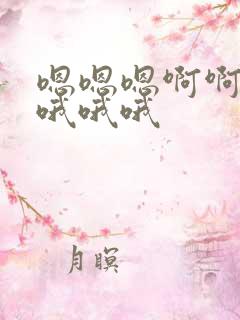 嗯嗯嗯啊啊
哦哦哦
月瞑